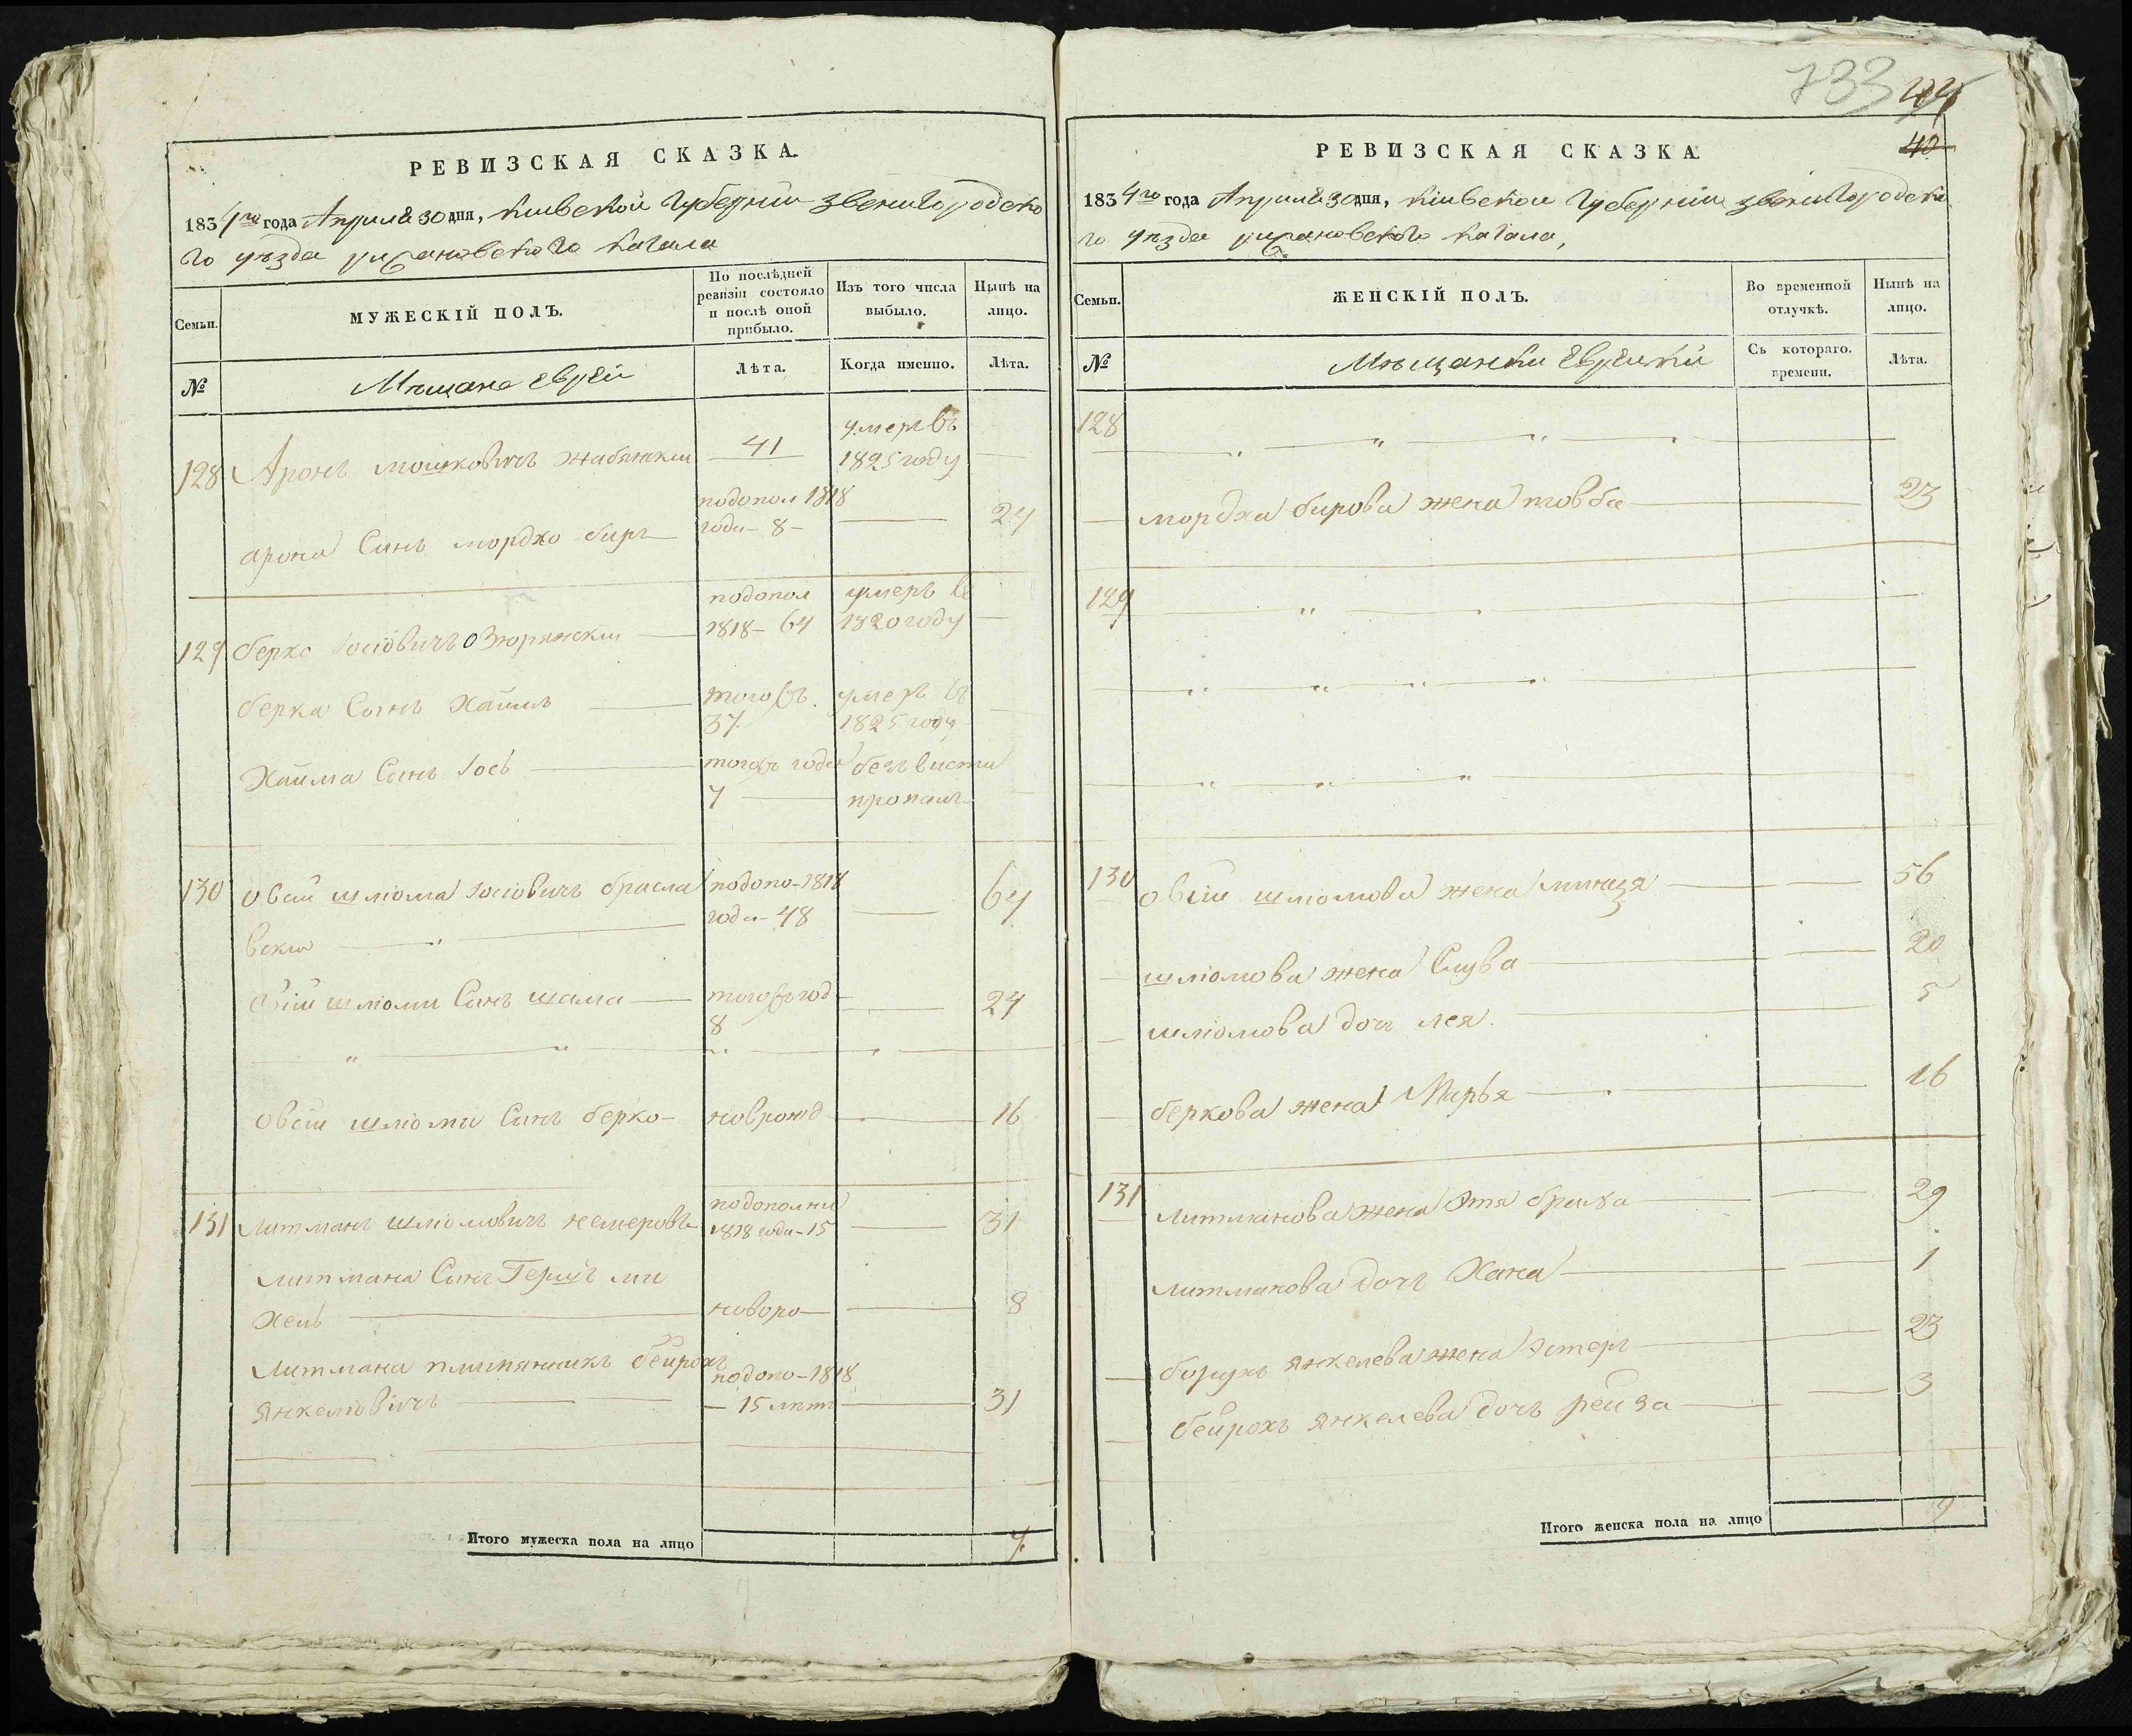 РЕВИЗСКАЯ СКАЗКА.
1834го года Апреля 30 дня, Киевской Губернии Звенигородско
го уезда рижановского Кагала
Семьи.
МУЖЕСКІЙ ПОЛЪ.
По послѣдней ревизіи состояло и послѣ оной прибыло.
Изъ того числа выбыло.
Нынѣ на лицо.
№
Мѣщане Евреи
Лѣта.
Когда именно.
Лѣта.
128 Аронъ мошковичъ жабянски 41 умер въ
1825 году
подопол 1818
арона Синъ мордко биръ года - 8 - 24
подопол умеръ въ
129 берко Іосіовичъ Озюрянски 1818 - 64 1820 году
берка Сынъ Хаимъ тогожъ умеръ въ
37. 1825 году
Хаима Синъ Іось тогожъ года безъ висти
7 пропалъ
130 овсій шліома Іосіовичъ брасла подопо-1818 64
вски года - 48
овсій шліоми Синъ шама тогожъ год 24
8
овсій шліоми Синъ берко - новрожд 16
подополни
131 Литманъ шліомовичъ немеровъ 1818 года - 15 31
Литмана Синъ Гершъ ми
хель новоро 8
Литмана племянникъ бейрохъ подопо-1818
Янкеліовичъ - 15 лѣтъ 31
Итого мужеска пола на лицо 7.
733 44
40
РЕВИЗСКАЯ СКАЗКА.
1834го года Апреля 30 дня, Кіивской Губерніи Звенигородска
го уѣзда рижановского Кагала,
Семьи.
ЖЕНСКІЙ ПОЛЪ.
Во временной отлучкѣ.
Нынѣ на лицо.
№
Мѣщанки Еврейки
Съ котораго. времени.
Лѣта.
128
мордха бирова жена товба 23
129
130 овсіи шліомова жена минця 56
шліомова жена Слува 20
шліомова дочъ лея. 5
беркова жена Мирья 16
131 Литманова жена Этя брайха 29
литманова дочъ Хана 1
борухъ янкелева жена Эстеръ 23
бейрохъ янкелева дочъ рейза 3
Итого женска пола на лицо 9